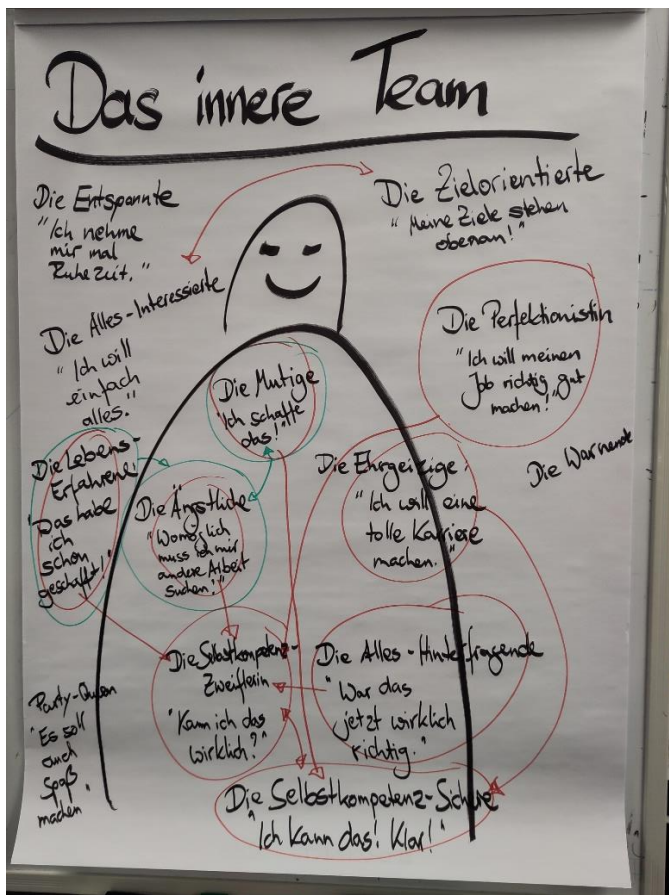 Das innere Team
Die Entspannte
"Ich nehme
mir mal
Ruhezeit."
Die Zielorientierte
"Meine Ziele stehen
obenan!"
Die Alles-Interessierte
"Ich will
einfach
alles."
Die Perfektionistin
"Ich will meinen
Job richtig gut
machen!"
Die Mutige
"Ich schaffe
das!"
Die Lebens-
Erfahrene:
"Das habe
ich
schon
geschafft!"
Die Ängstliche
"Womöglich
muss ich mir
andere Arbeit
suchen!"
Die Ehrgeizige:
"Ich will eine
tolle Karriere
machen."
Die Warnende
Die Selbstkompetenz-
Zweiflerin
"Kann ich das
wirklich?"
Die Alles-Hinterfragende
"War das
jetzt wirklich
richtig."
Party-Queen
"Es soll
auch
Spaß
machen"
Die Selbstkompetenz-Sichere
"Ich kann das! Klar!"